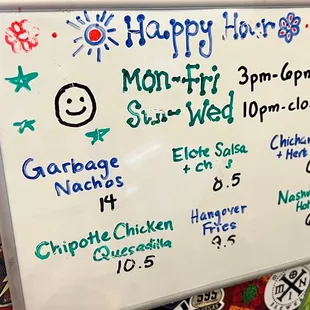 Happy Hour
Mon-Fri 3pm-6pm
Sun-Wed 10pm-clo
Garbage
Nachos
14
Elote Salsa
+ Ch s
8.5
Chicha
+ Hert
Chipotle Chicken
Quesadilla
10.5
Hangover
Fries
9.5
Nashv
Hot
595